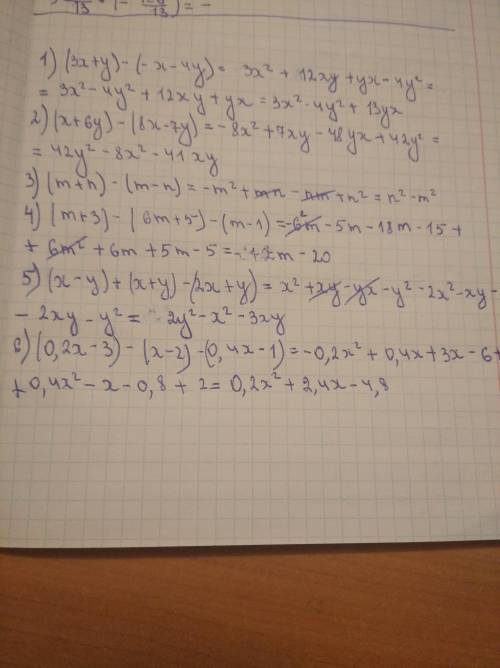 1) (3x+y)-(-x-4y)= 3x²+12xy+yx-4y²=
=3x²-4y²+12xy+yx=3x²-4y²+13yx
2) (x+6y)-(8x-7y)=-8x²+7xy-48yx+42y²=
=42y²-8x²-41xy
3) (m+n)-(m-n)=-m²+mn-nm+n²=n²-m²
4) (m+3)-(6m+5)-(m-1)=-6m²-5m-18m-15+
+6m²+6m+5m-5=-12m-20
5) (x-y)+(x+y)-(2x+y)=x²+xy-yx-y²-2x²-xy-
-2xy-y²=2y²-x²-3xy
6) (0,2x-3)-(x-2)-(0,4x-1)=-0,2x²+0,4x+3x-6+
+0,4x²-x-0,8+2=0,2x²+2,4x-4,8